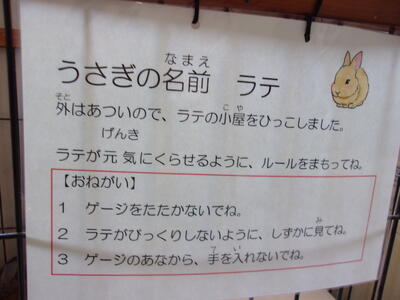 なまえ
うさぎの名前　ラテ
そと　こや
外はあついので、ラテの小屋をひっこしました。
げんき
ラテが元気にくらせるように、ルールをまもってね。
【おねがい】
1　ゲージをたたかないでね。
み
2　ラテがびっくりしないように、しずかに見てね。
て　い
3　ゲージのあなから、手を入れないでね。